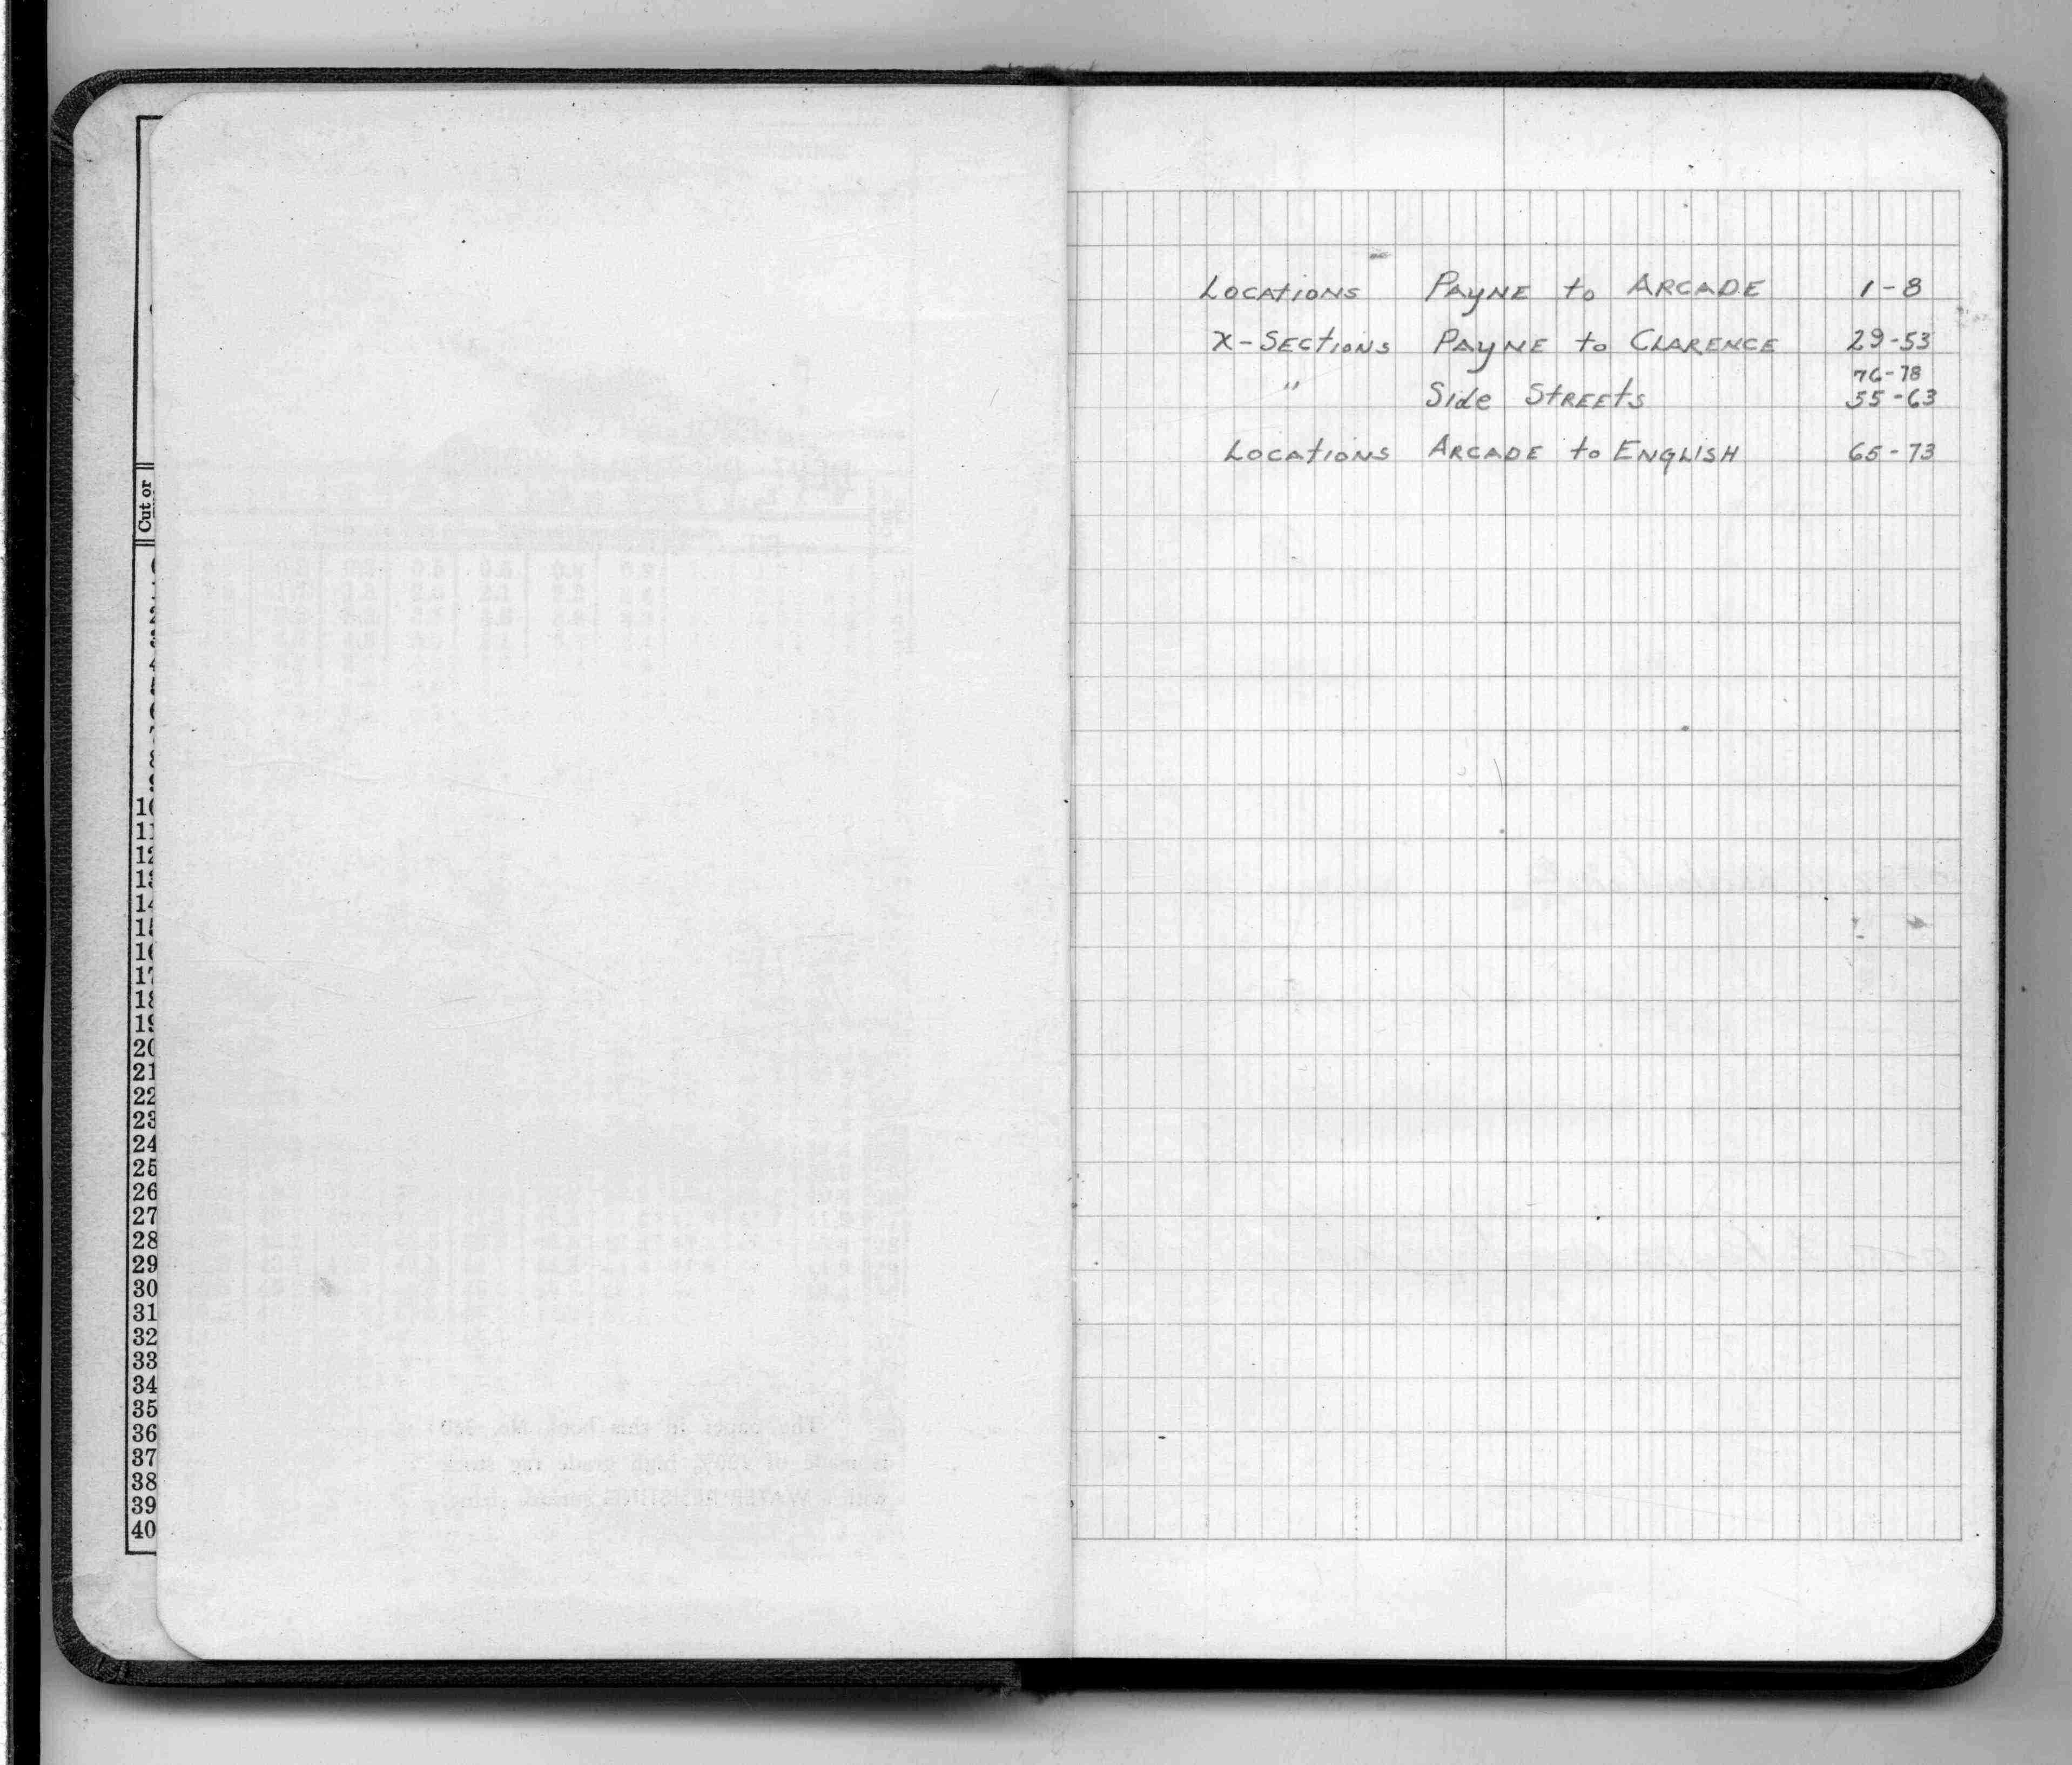 Cut or
10
11
12
13
14
15
16
17
18
19
20
21
22
23
24
25
26
27
28
29
30
31
32
33
34
35
36
37
38
39
40
LOCATIONS PAYNE to ARCADE 1-8
X-SECTIONS PAYNE to CLARENCE 29-53
76-78
" Side STREETS 55-63
LOCATIONS ARCADE to ENGLISH 65-73